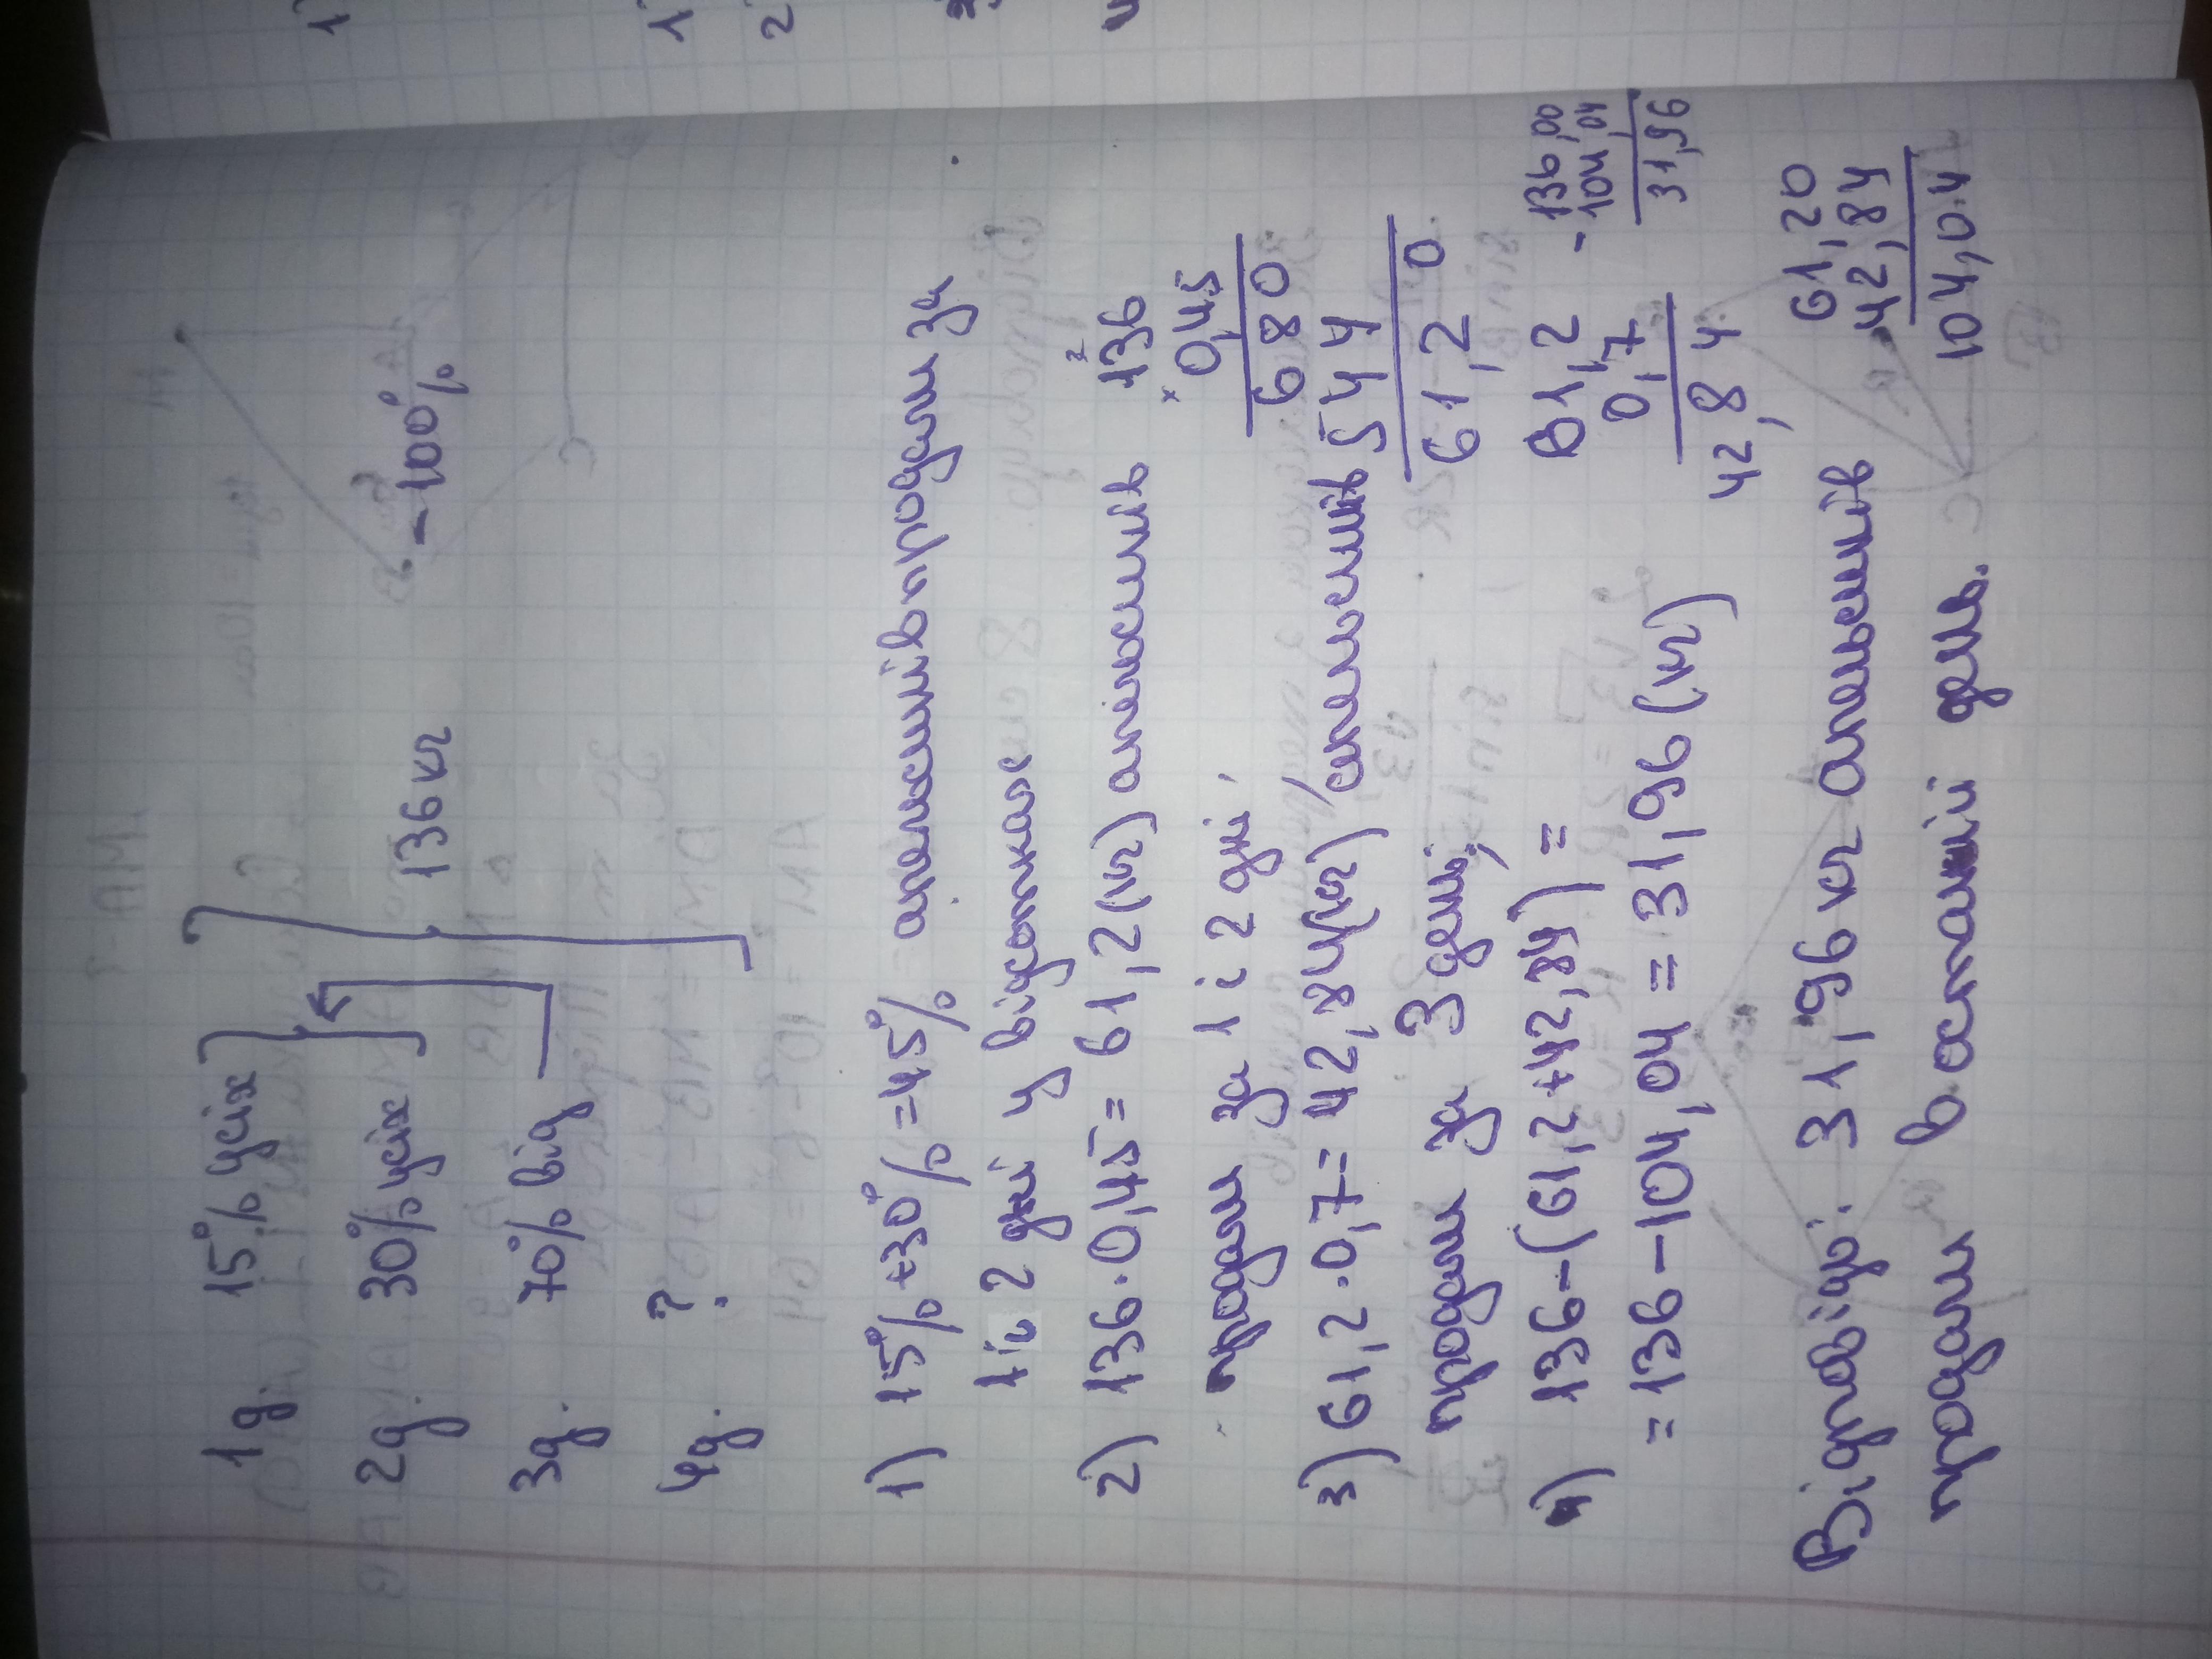 1д. 15% усіх
2д. 30% усіх 136 кг - 100%
3д. 70% від
4д. ?
1) 15% + 30% = 45% апельсинів продали за
1 і 2 дні у відсотках
2) 136 · 0,45 = 61,2 (кг) апельсинів
продали за 1 і 2 дні;
3) 61,2 · 0,7 = 42,84 (кг) апельсинів
продали за 3 день;
4) 136 - (61,2 + 42,84) =
= 136 - 104,04 = 31,96 (кг)
Відповідь: 31,96 кг апельсинів
продали в останній день.
2
136
× 0,45
680
544
61,20
61,2
0,7
42,84
- 136,00
104,04
31,96
61,20
42,84
104,04